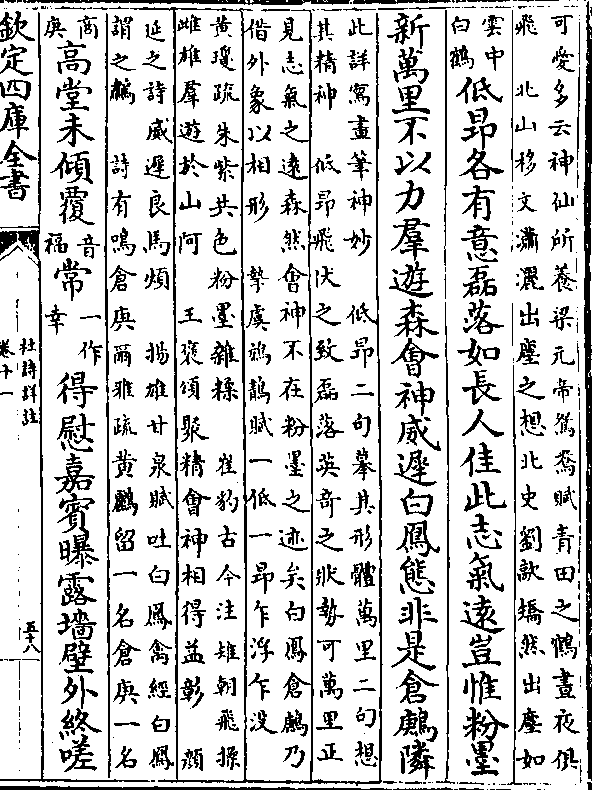 可愛多云神仙所養梁元帝鴛鴦賦青田之鶴晝夜俱
飛　北山移文瀟灑出塵之想北史劉歊矯然出塵如
雲中白鶴低昂各有意磊落如長人佳此志氣遠豈惟粉墨
新萬里不以力羣遊森會神威遲白鳳態非是倉鶊隣
此詳寫畫筆神妙　低昂二句摹其形體萬里二句想
其精神　低昂飛伏之致磊落英奇之狀勢可萬里正
見志氣之遠森然會神不在粉墨之迹矣白鳳倉鶊乃
借外象以相形　摯虞鵁鶄賦一低一昂乍浮乍没
黄瓊疏朱紫共色粉墨雜糅　崔豹古今注雉朝飛操
雌雄羣遊於山阿　王褒頌聚精會神相得益彰　顔
延之詩威遲良馬煩　揚雄甘泉賦吐白鳳禽經白鳳
謂之鷫　詩有鳴倉庚爾雅疏黄鸝留一名倉庚一名
商庚高堂未傾覆音福常一作幸得慰嘉賓曝露墻壁外終嗟
欽定四庫全書
杜詩詳註
卷十一
五十八